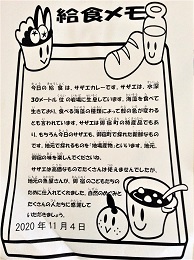 給食メモ
今日の給食は、サザエカレーです。サザエは、水深
30メートル位の岩場に生息しています。海藻を食べて
生きており、食べる海藻の種類によって殻の色が変わる
とも言われています。サザエは御宿町の特産品でもあ
り、もちろん今日のサザエも、御宿町で採れた新鮮なもの
です。地元で採れるものを「地場産物」といいます。地元、
御宿の味を楽しんでくださいね。
サザエは高価なものでたくさんは使えませんでしたが、
地元の漁屋さんが、御宿のこどもたちの
ために仕入れてくれました。自然のめぐみと
たくさんの人たちに感謝して
いただきましょう。
2020年11月4日